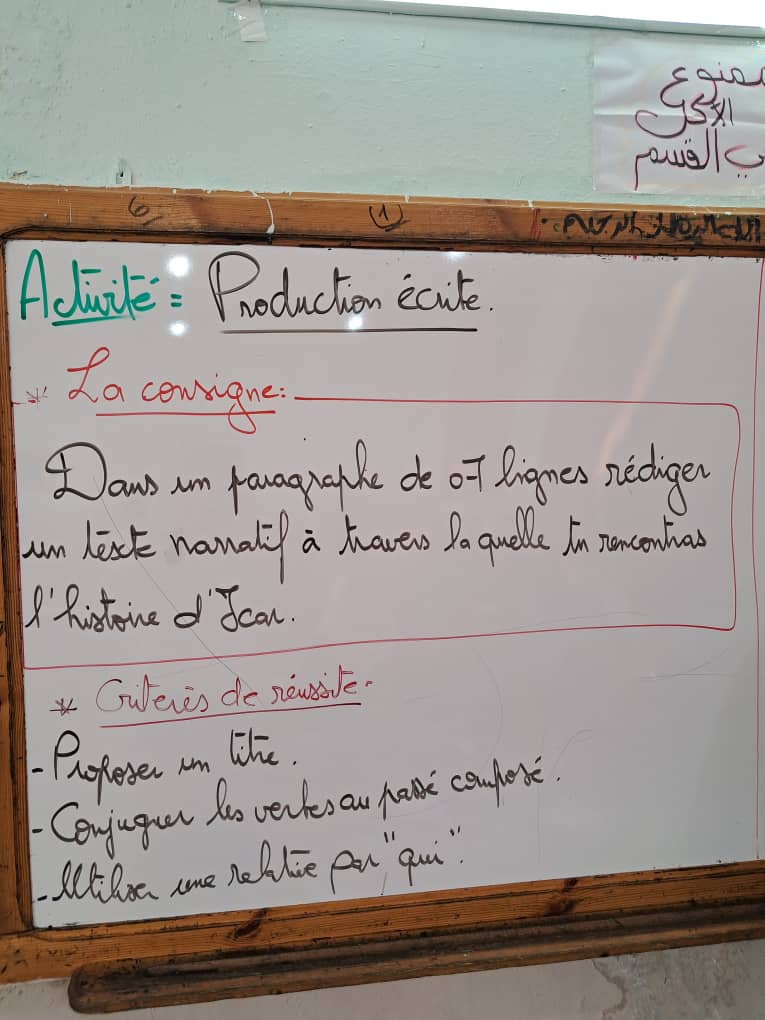 ممنوع
الأكل
في القسم
6 (1)
Activité : Production écrite.
* La consigne:
Dans un paragraphe de 07 lignes rédiger
un texte narratif à travers laquelle tu rencontras
l'histoire d'Icar.
* Criterès de réussite.
- Proposer un titre.
- Conjuguer les verbes au passé composé.
- Utiliser une relative par "qui".